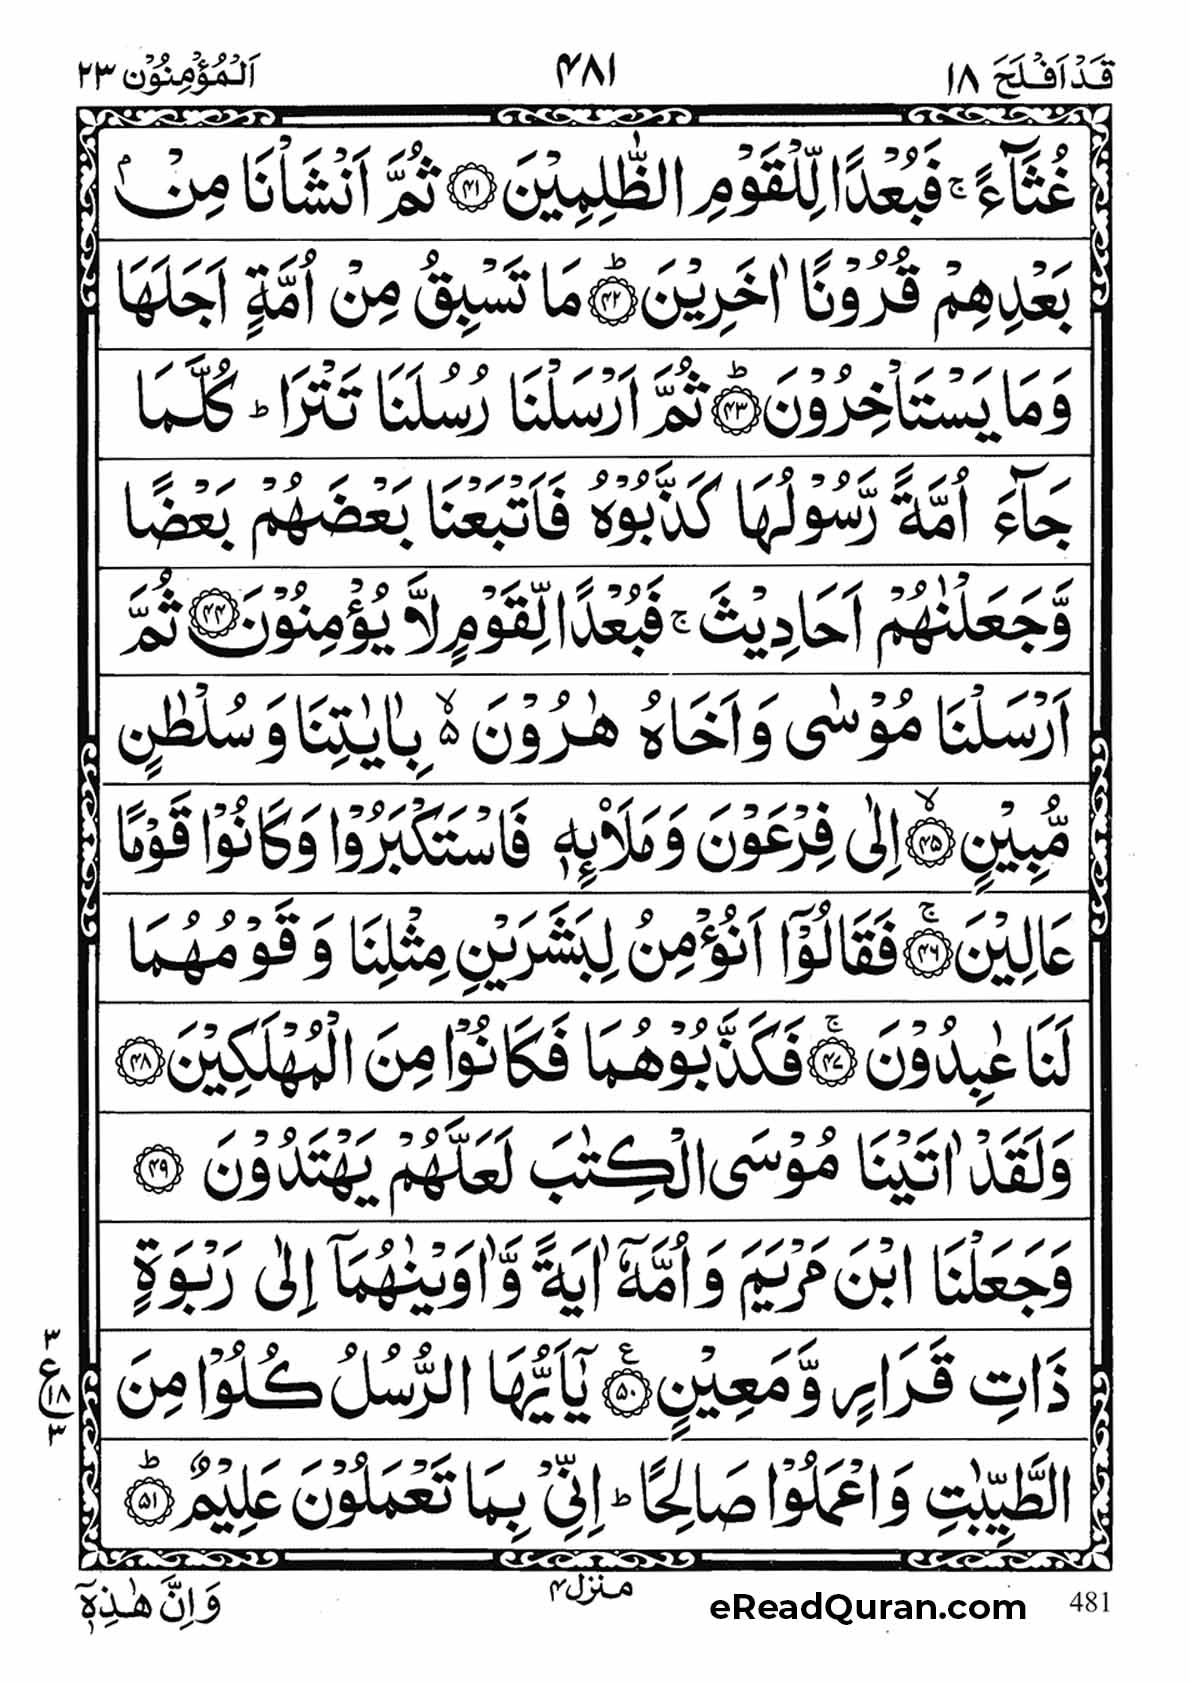 قَدْ اَفْلَحَ ١٨ ۴۸۱ اَلْمُؤْمِنُوْن ٢٣
غُثَآءً ۚ فَبُعْدًا لِّلْقَوْمِ الظّٰلِمِيْنَ ﴿۴۱﴾ ثُمَّ اَنْشَاْنَا مِنْۢ
بَعْدِهِمْ قُرُوْنًا اٰخَرِيْنَ ؕ﴿۴۲﴾ مَا تَسْبِقُ مِنْ اُمَّةٍ اَجَلَهَا
وَمَا يَسْتَاْخِرُوْنَ ؕ﴿۴۳﴾ ثُمَّ اَرْسَلْنَا رُسُلَنَا تَتْرَا ؕ كُلَّمَا
جَآءَ اُمَّةً رَّسُوْلُهَا كَذَّبُوْهُ فَاَتْبَعْنَا بَعْضَهُمْ بَعْضًا
وَّجَعَلْنٰهُمْ اَحَادِيْثَ ۚ فَبُعْدًا لِّقَوْمٍ لَّا يُؤْمِنُوْنَ ﴿۴۴﴾ ثُمَّ
اَرْسَلْنَا مُوْسٰى وَاَخَاهُ هٰرُوْنَ ۙ۵ بِاٰيٰتِنَا وَسُلْطٰنٍ
مُّبِيْنٍ ۙ﴿۴۵﴾ اِلٰى فِرْعَوْنَ وَمَلَا۟ئِهٖ فَاسْتَكْبَرُوْا وَكَانُوْا قَوْمًا
عَالِيْنَ ۚ﴿۴۶﴾ فَقَالُوْۤا اَنُؤْمِنُ لِبَشَرَيْنِ مِثْلِنَا وَقَوْمُهُمَا
لَنَا عٰبِدُوْنَ ۚ﴿۴۷﴾ فَكَذَّبُوْهُمَا فَكَانُوْا مِنَ الْمُهْلَكِيْنَ ﴿۴۸﴾
وَلَقَدْ اٰتَيْنَا مُوْسَى الْكِتٰبَ لَعَلَّهُمْ يَهْتَدُوْنَ ﴿۴۹﴾
وَجَعَلْنَا ابْنَ مَرْيَمَ وَاُمَّهٗۤ اٰيَةً وَّاٰوَيْنٰهُمَاۤ اِلٰى رَبْوَةٍ
ذَاتِ قَرَارٍ وَّمَعِيْنٍ ﴿۵۰﴾ ع يٰۤاَيُّهَا الرُّسُلُ كُلُوْا مِنَ
۳ ع ۱۸ ۳
الطَّيِّبٰتِ وَاعْمَلُوْا صَالِحًا ؕ اِنِّيْ بِمَا تَعْمَلُوْنَ عَلِيْمٌ ؕ﴿۵۱﴾
وَاِنَّ هٰذِهٖۤ منزل۴ eReadQuran.com 481